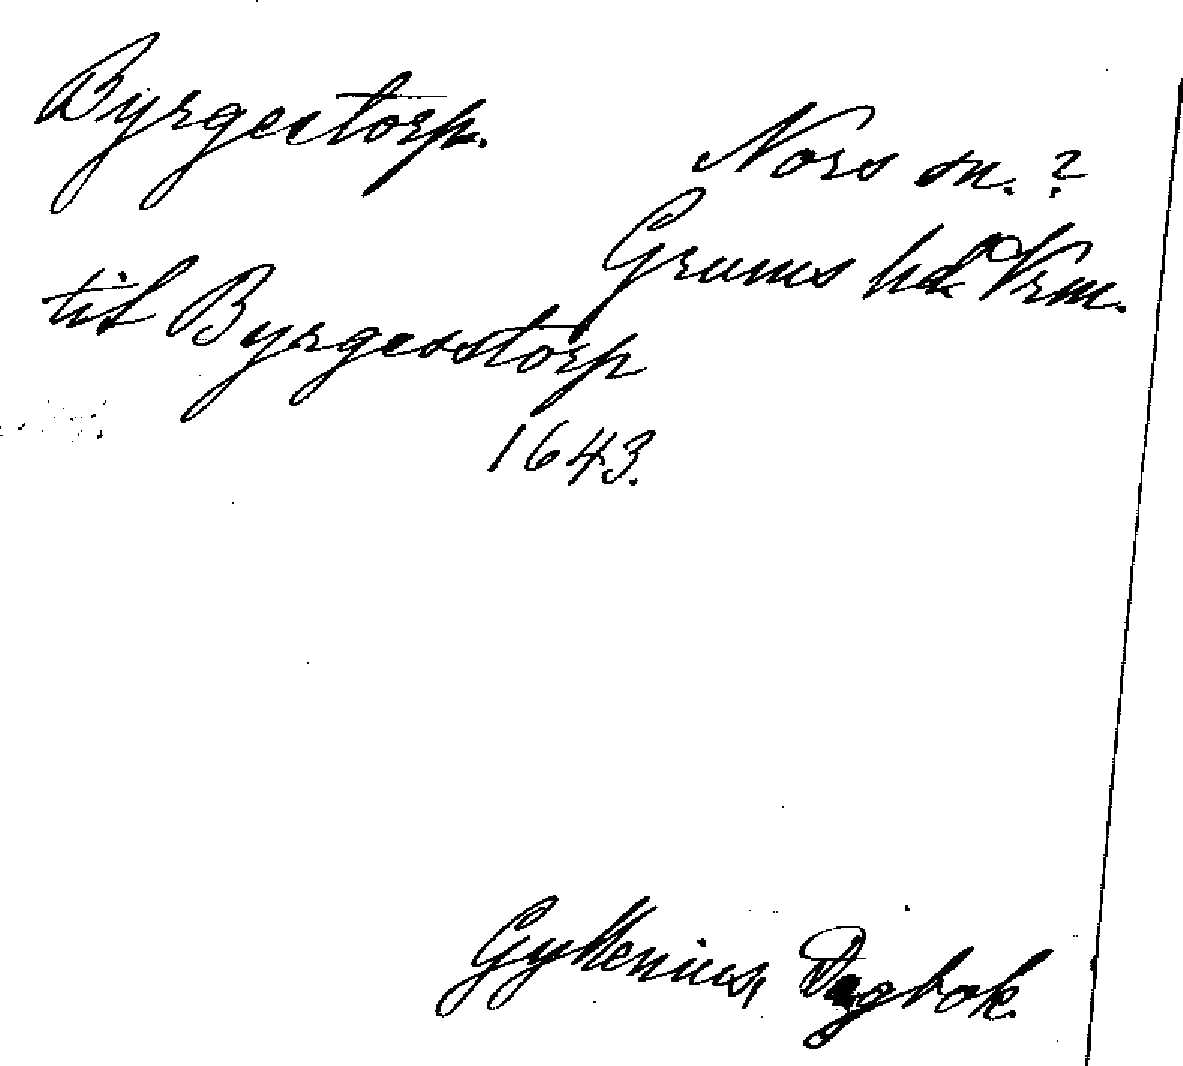 Byrgestorp.
Nors sn. ?
Grums hd Vrm.
til Byrgesstorp
1643.
Gyllenius, Dagbok.